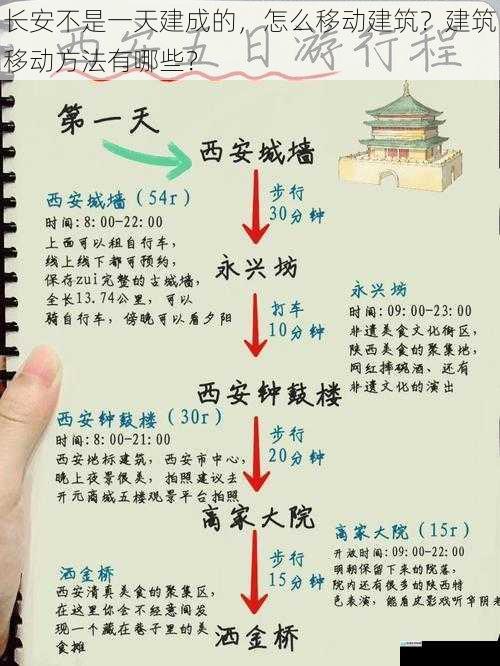 长安不是一天建成的，怎么移动建筑？建筑
移动方法有哪些？
西安五日游行程
第一天
西安城墙
西安城墙（54r）
时间：8:00-22:00
上面可以租自行车，
线上线下都可预约，
保存zui完整的古城墙，
全长13.74公里，可以
骑自行车，傍晚可以看夕阳
步行
30分钟
永兴坊
打车
10分钟
永兴坊
时间：09:00-23:00
非遗美食文化街区，
陕西美食的聚集地，
网红摔碗酒、还有
非遗文化的演出
西安钟鼓楼
西安钟鼓楼（30r）
时间：8:00-21:00
西安地标建筑，西安市中心，
晚上夜景很美，拍照建议去
开元商城五楼观景平台拍照
步行
20分钟
高家大院
高家大院（15r）
开放时间：09:00-22:00
明朝保留下来的院落，
院内还有很多的陕西特
色表演，能看皮影戏听华阴老
步行
15分钟
洒金桥
西安清真美食的聚集区，
在这里你会不经意间发
现一个藏在巷子里的美
食摊
洒金桥